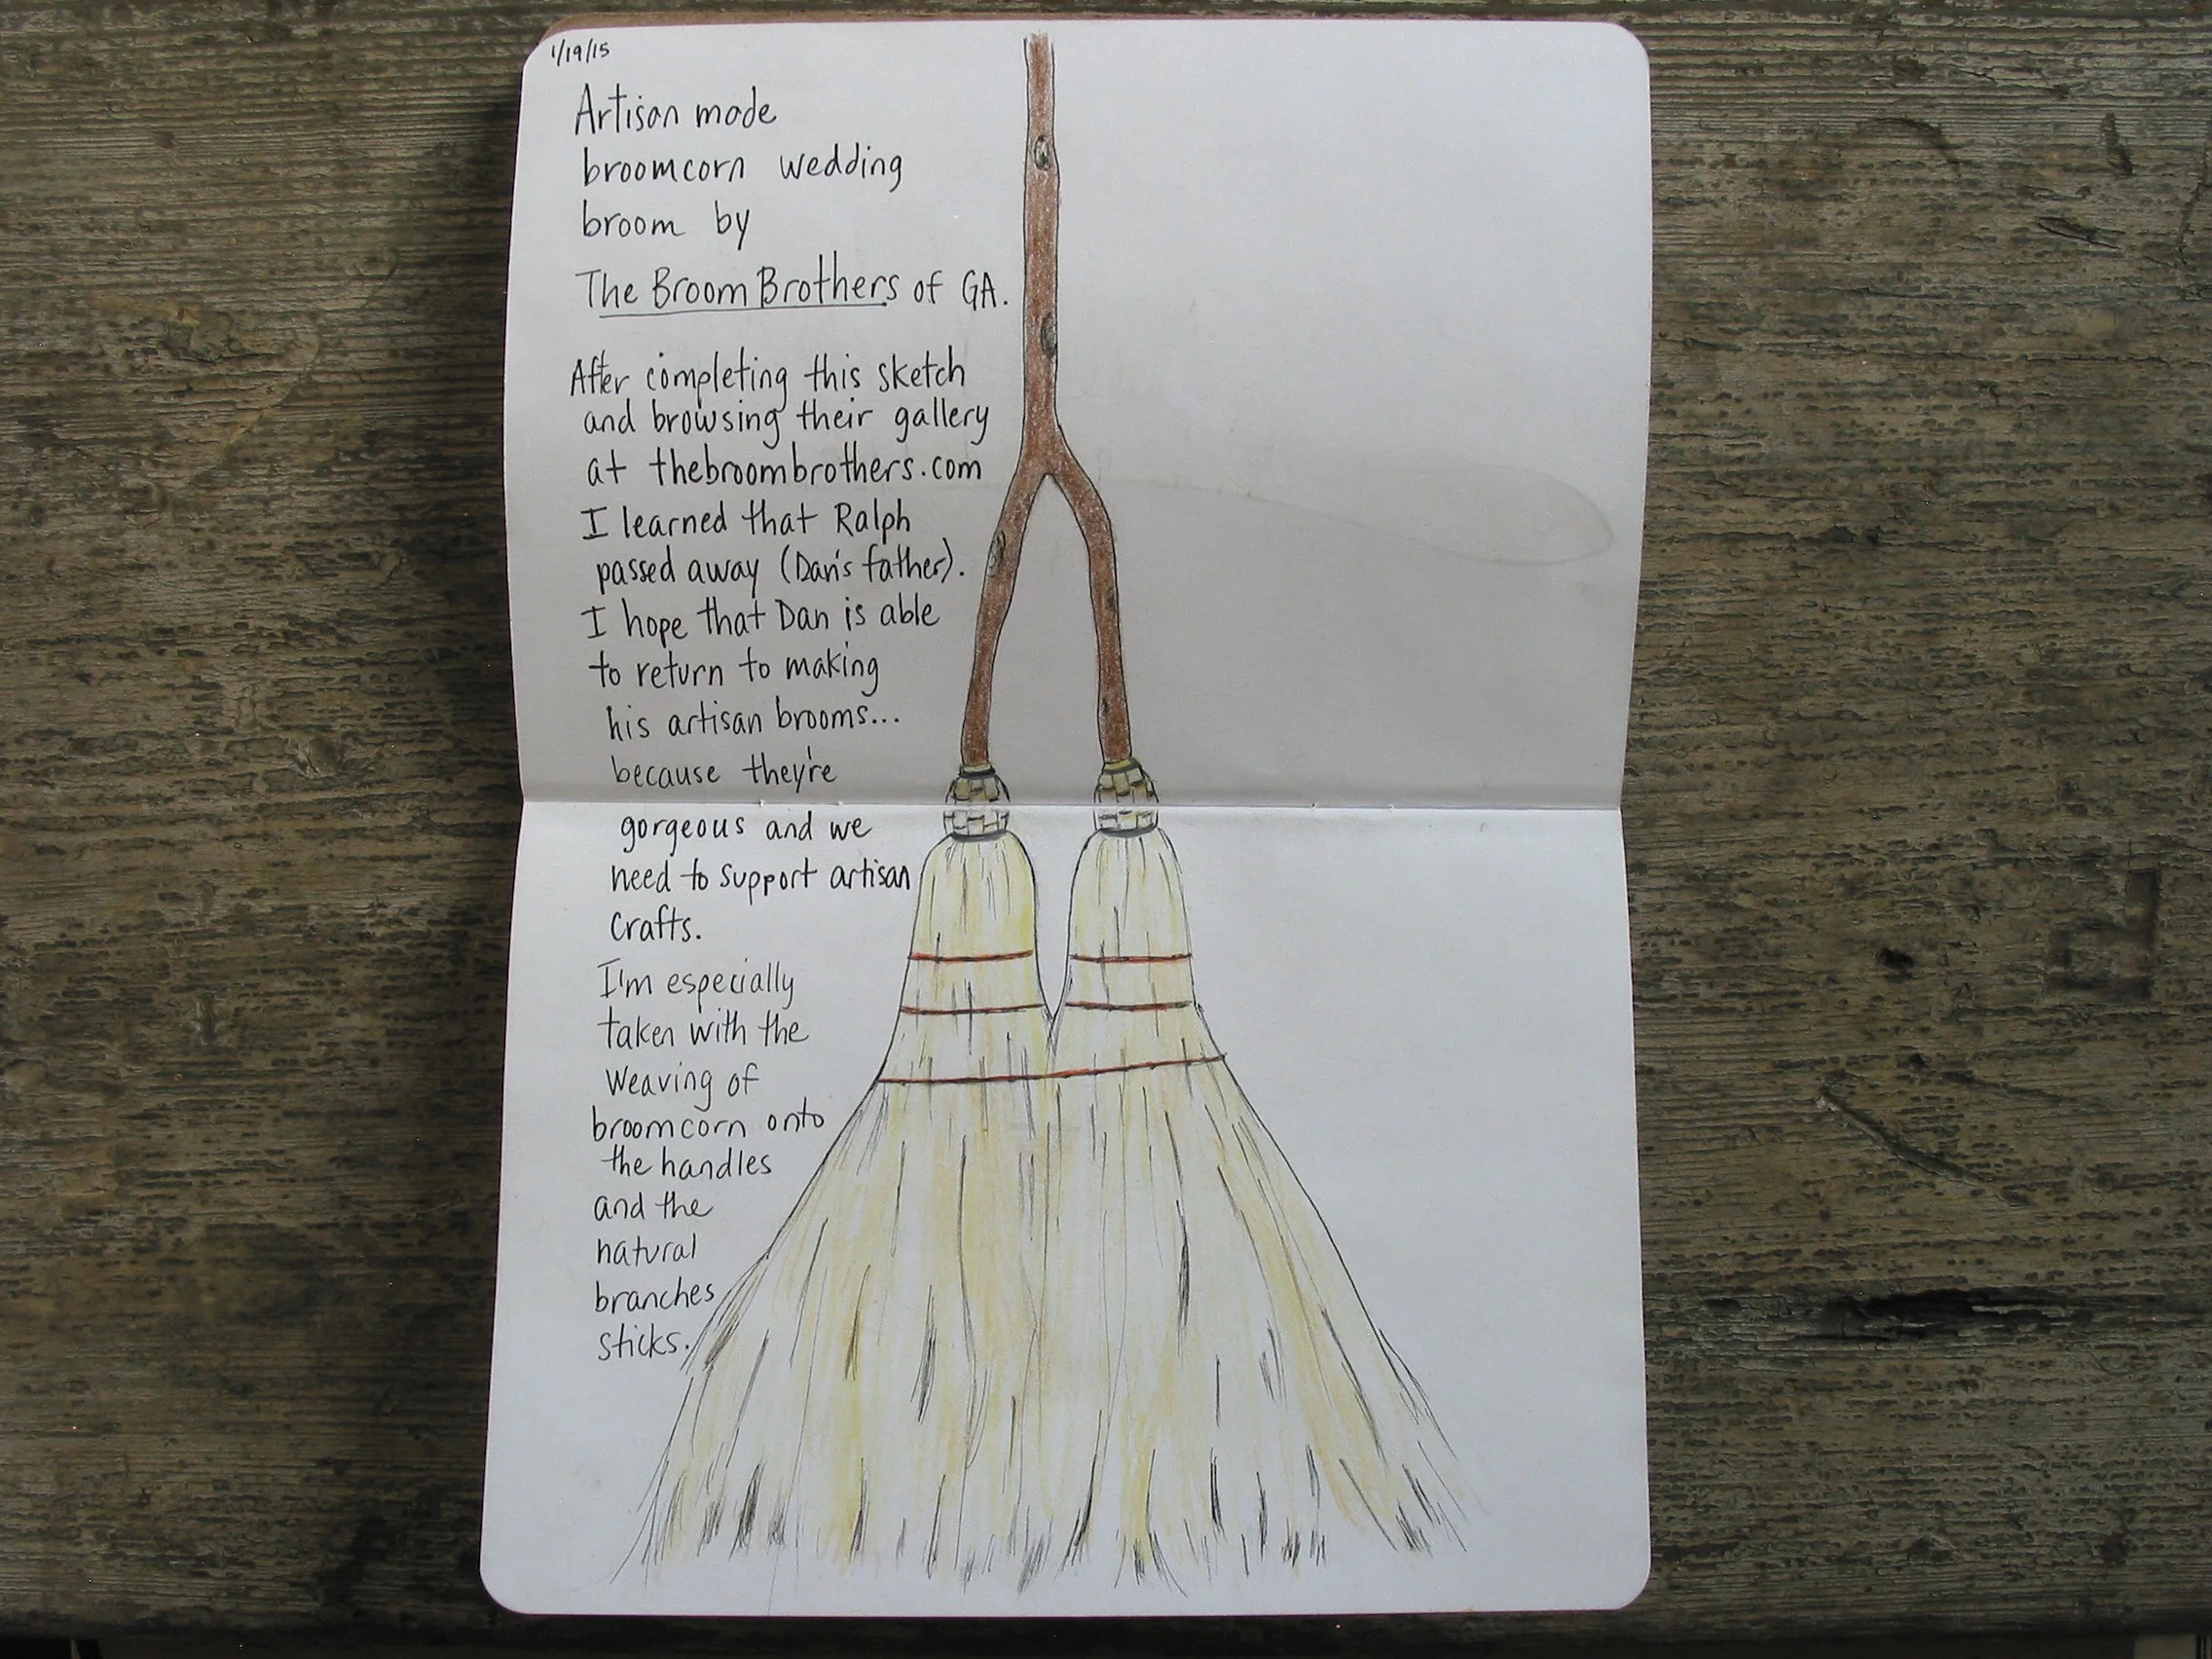 1/19/15
Artisan made
broomcorn wedding
broom by
The Broom Brothers of GA.
After completing this sketch
and browsing their gallery
at thebroombrothers.com
I learned that Ralph
passed away (Dan's father).
I hope that Dan is able
to return to making
his artisan brooms...
because they're
gorgeous and we
need to support artisan
crafts.
I'm especially
taken with the
weaving of
broomcorn onto
the handles
and the
natural
branches
sticks.